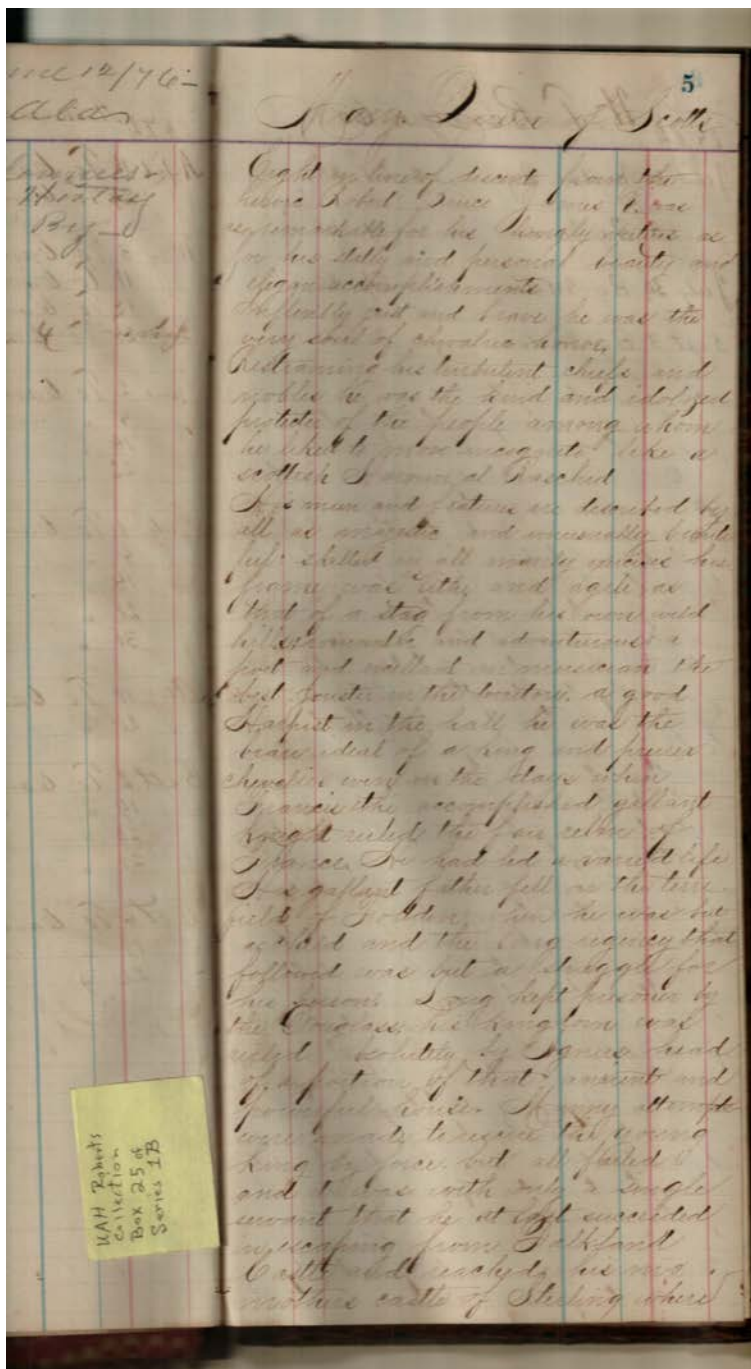 12/76-
5
Mary Queen of Scotts
Eight in line of descent from the
heroic Robert Bruce James V was
as remarkable for his kingly virtues as
for his stately and personal beauty and
elegant accomplishments
just and brave he was the
very soul of chivalric honor,
Restraining his turbulent chiefs and
nobles he was the kind and idolized
protector of the people among whom
he liked to move incognito like a
scottish Haroun al Rasched
His mien and features are described by
all as majestic and unusually beauti
ful skilled in all manly his
frame was lithe and agile as
that of a stag from his own wild
hills romantic and adventurous a
poet and musician the
best Jouster in the a good
Harpist in the hall he was the
beau ideal of a king and preux
chevalier even in the days when
Francis the accomplished gallant
knight ruled the fair relm of
France. He had led a varied life
His gallant father fell on the
field of Flodden when he was but
a child and the long regency that
followed was but a struggle for
his person. Long kept prisoner by
the Douglass his kingdom was
ruled absolutely by head
of a portion of that ancient and
powerful house. Many attempts
were made to rescue the young
king by force but all failed
and it was with only a single
servant that he at last succeeded
in escaping from Falkland
Castle and reached his mo
mothers castle of Sterling where
4
UAH Roberts
Collection
Box 25 of
Series 1B